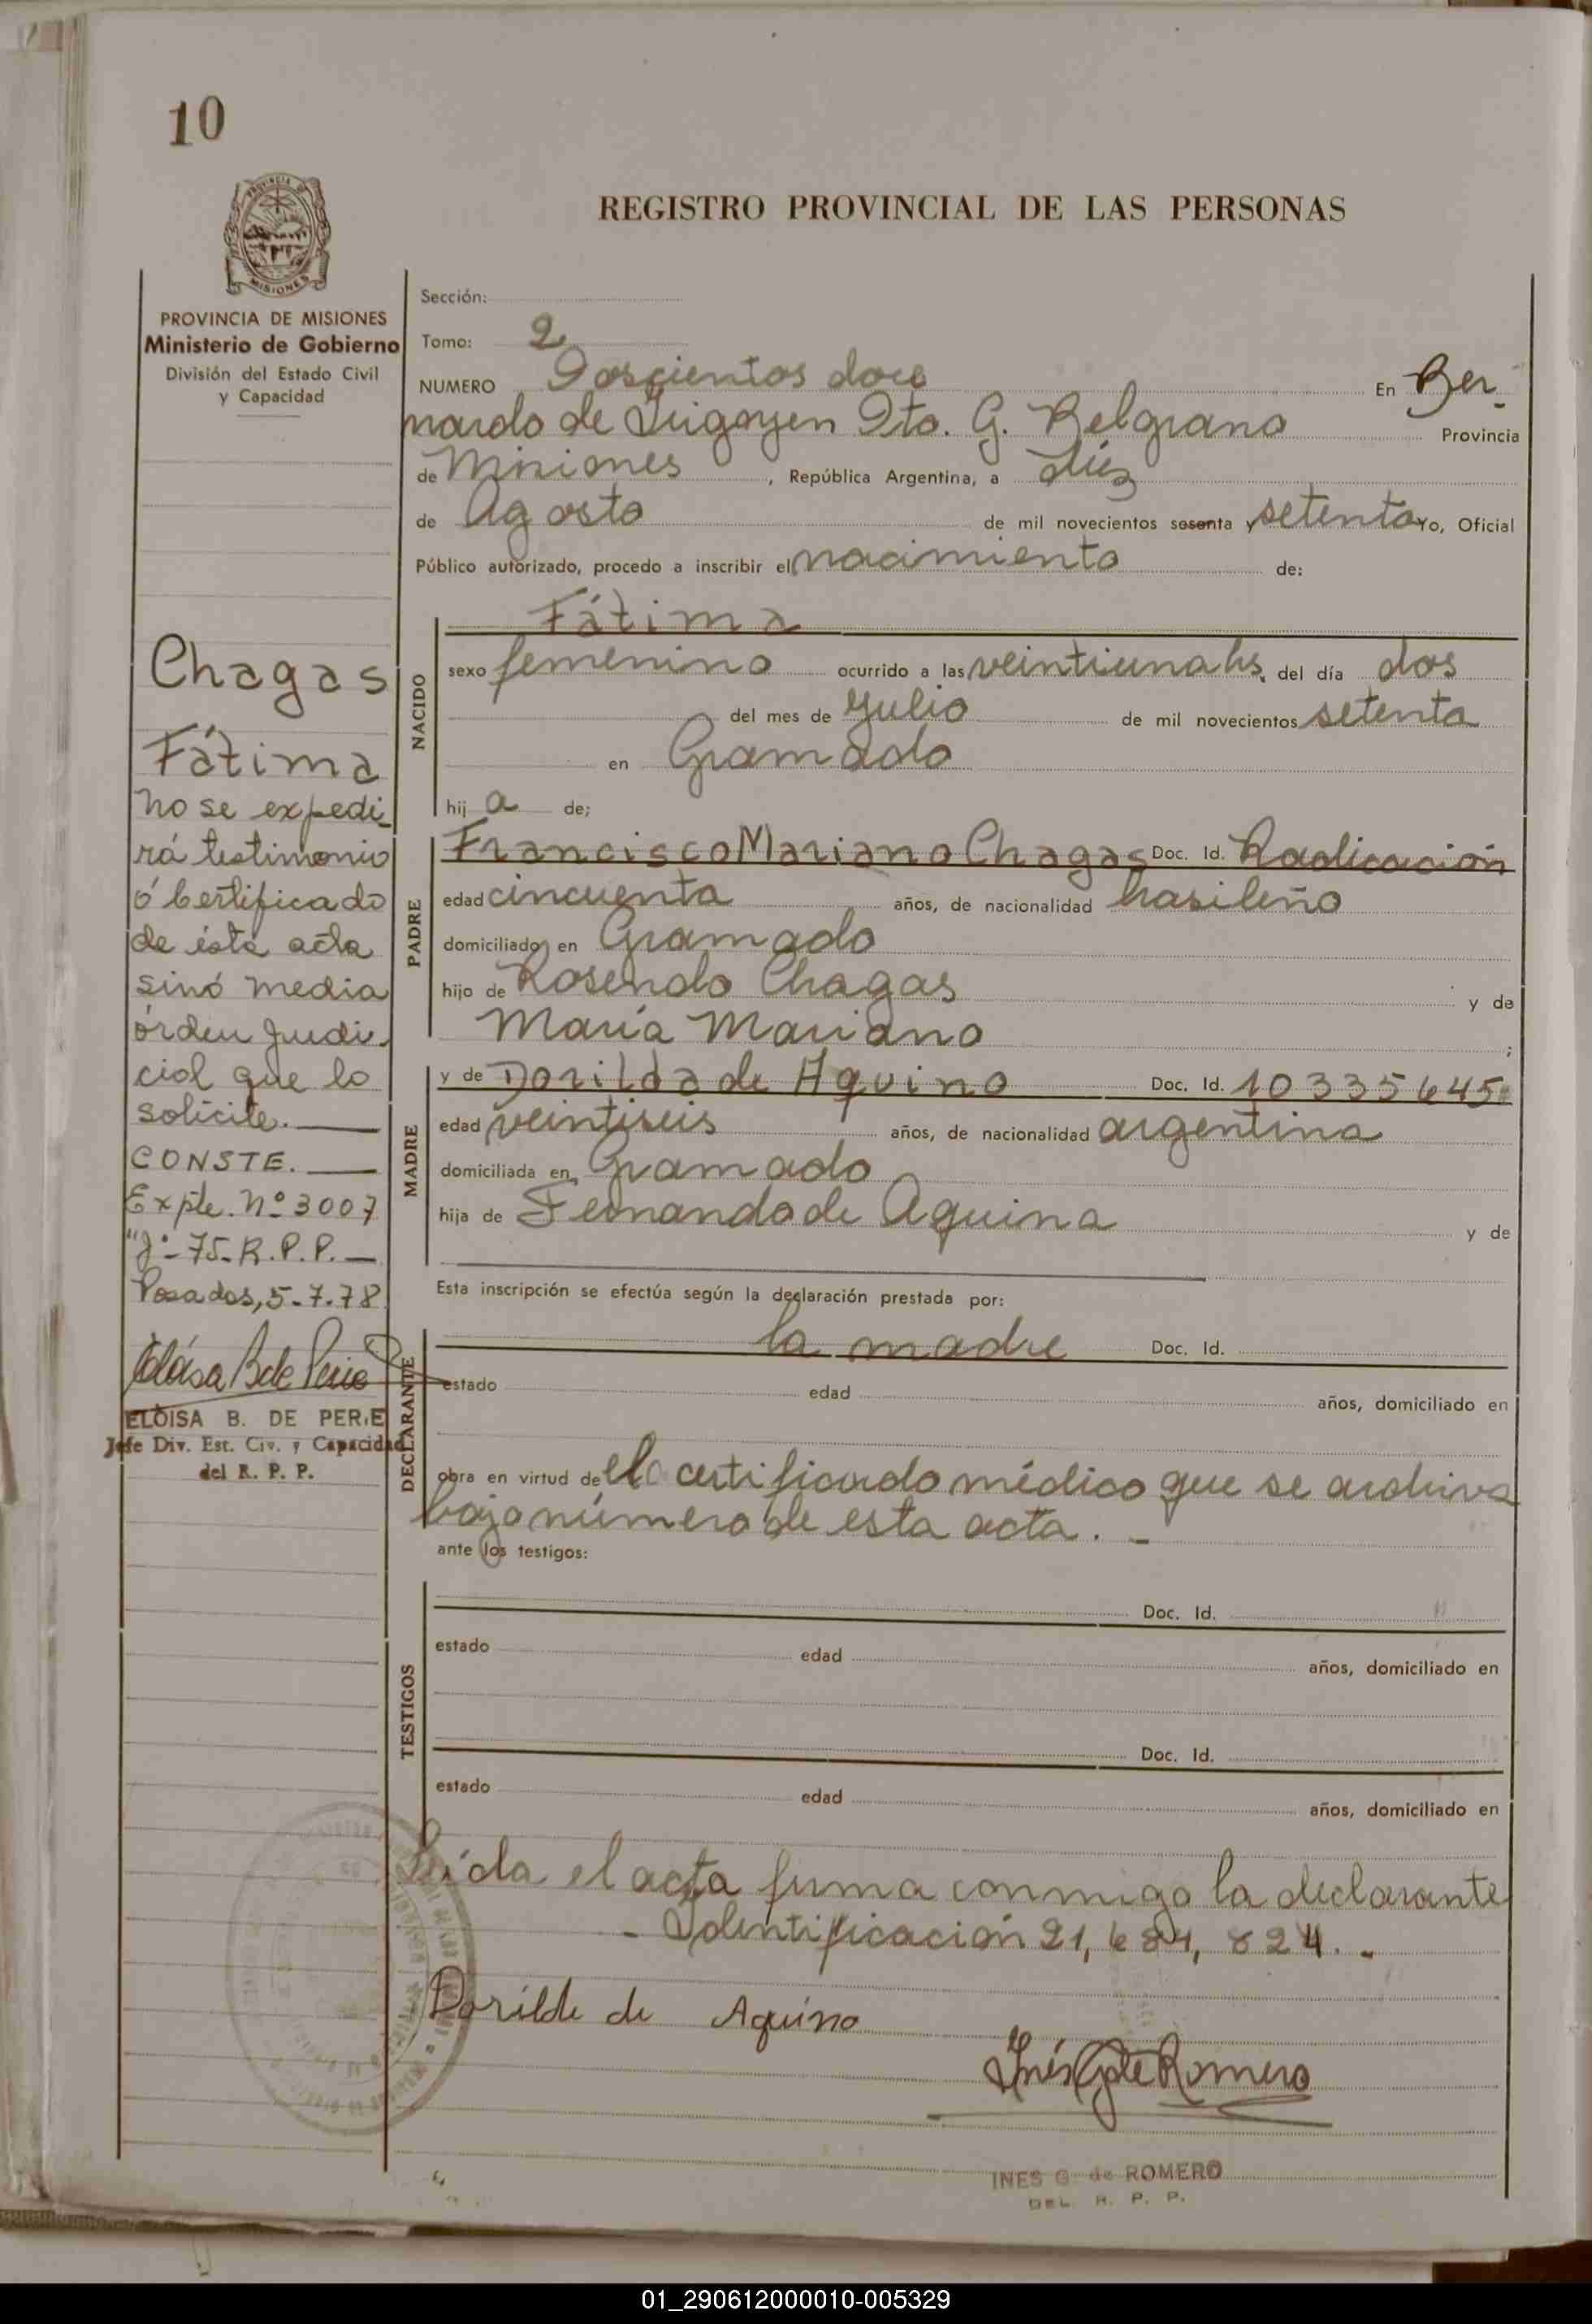 10
REGISTRO PROVINCIAL DE LAS PERSONAS
PROVINCIA DE MISIONES
Ministerio de Gobierno
División del Estado Civil
y Capacidad
Sección:
Tomo: 2
NUMERO Doscientos doce En Ber-
nardo de Irigoyen Dto. G. Belgrano Provincia
de Misiones, República Argentina, a diéz
de Agosto de mil novecientos sesenta y setenta Yo, Oficial
Público autorizado, procedo a inscribir el nacimiento de:
Chagas
Fátima
no se expedi-
rá testimonio
ó certificado
de ésta acta
sinó media
órden judi-
cial que lo
solicite.
CONSTE.
Expte. Nº 3007
"J"-75-R.P.P.
Posadas, 5-7-78
ELOISA B. DE PERIE
Jefe Div. Est. Civ. y Capacidad
del R. P. P.
NACIDO
Fátima
sexo femenino ocurrido a las veintiuna hs. del día dos
del mes de Julio de mil novecientos setenta
en Gramado
hij a de;
PADRE
Francisco Mariano Chagas Doc. Id. Radicación
edad cincuenta años, de nacionalidad brasileño
domiciliado en Gramado
hijo de Rosendo Chagas y de
María Mariano ;
MADRE
y de Dorilda de Aquino Doc. Id. 10335645
edad veintiseis años, de nacionalidad argentina
domiciliada en Gramado
hija de Fernando de Aquina y de
Esta inscripción se efectúa según la declaración prestada por:
DECLARANTE
la madre Doc. Id.
estado edad años, domiciliado en
obra en virtud de el certificado médico que se archiva
bajo número de esta acta. -
ante los testigos:
TESTIGOS
Doc. Id.
estado edad años, domiciliado en
Doc. Id.
estado edad años, domiciliado en
Leída el acta firma conmigo la declarante
- Identificación 21,684,824. -
Dorilde de Aquino
Inés G de Romero
INES G. de ROMERO
DEL. R. P. P.
01_290612000010-005329